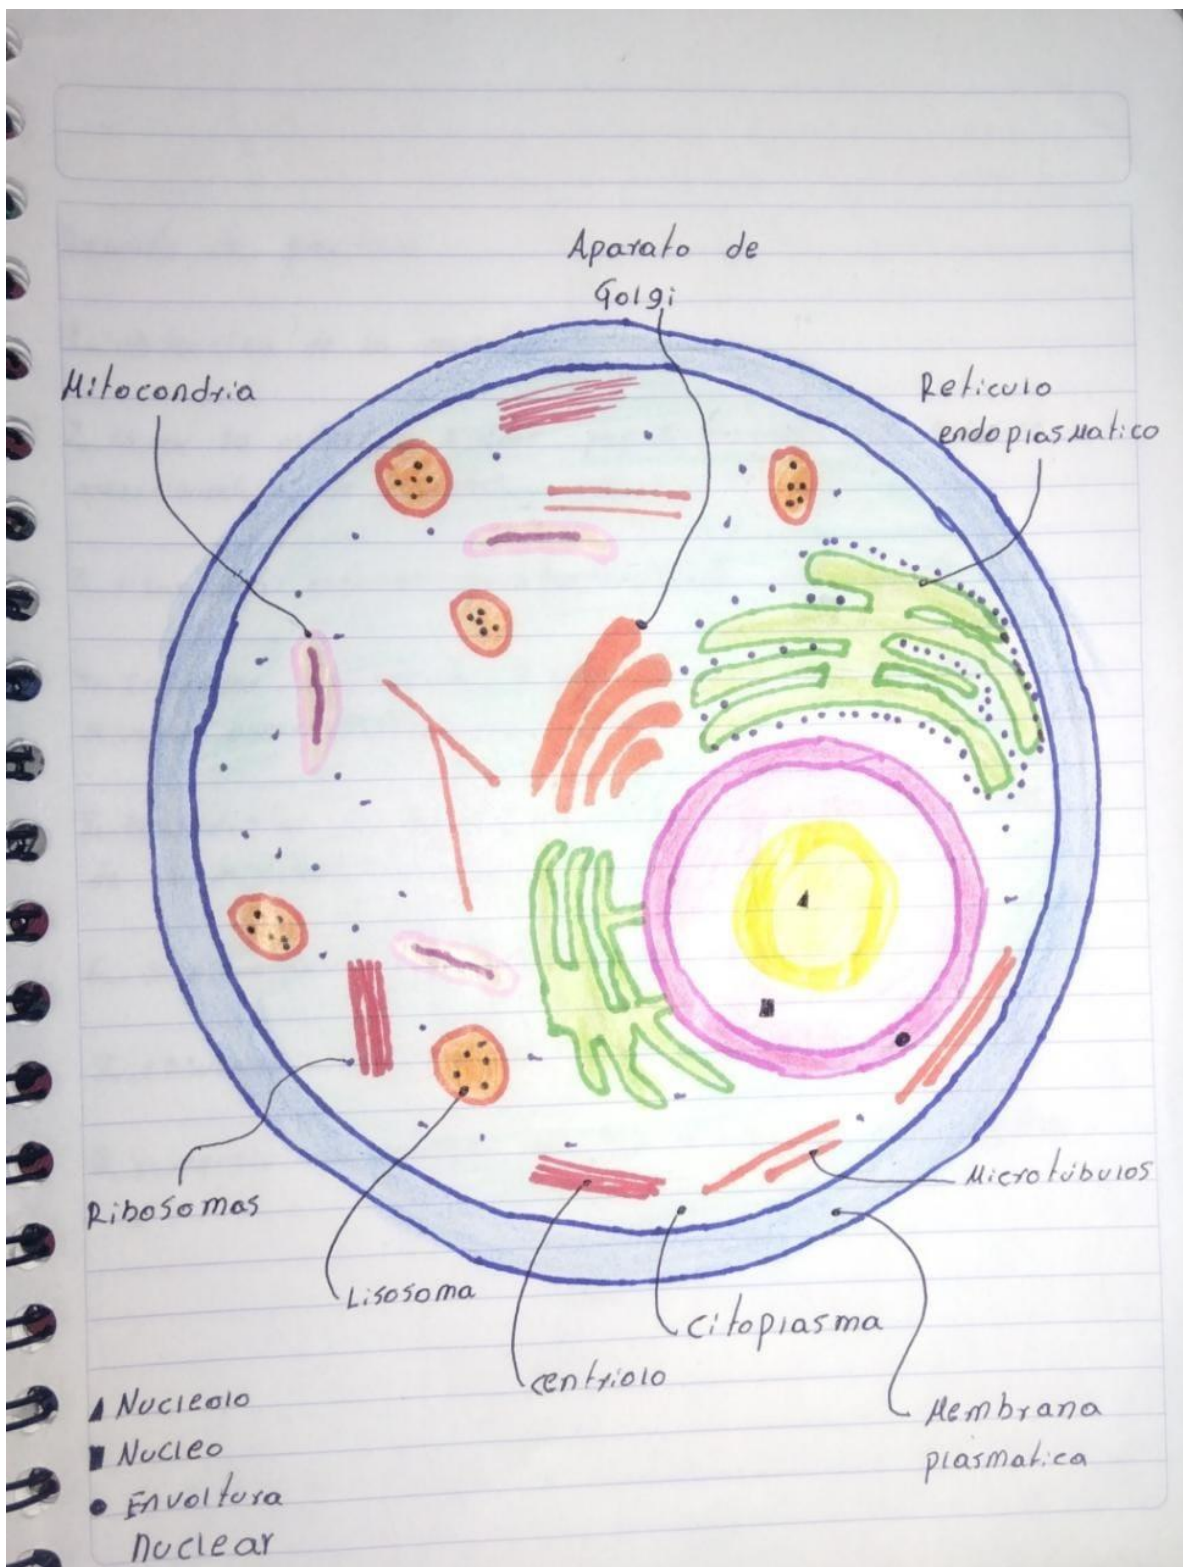 Aparato de
Golgi
Mitocondria
Reticulo
endoplasmatico
Microtúbulos
Ribosomas
Lisosoma
citoplasma
centriolo
Membrana
plasmatica
Nucleolo
Nucleo
Envoltura
nuclear